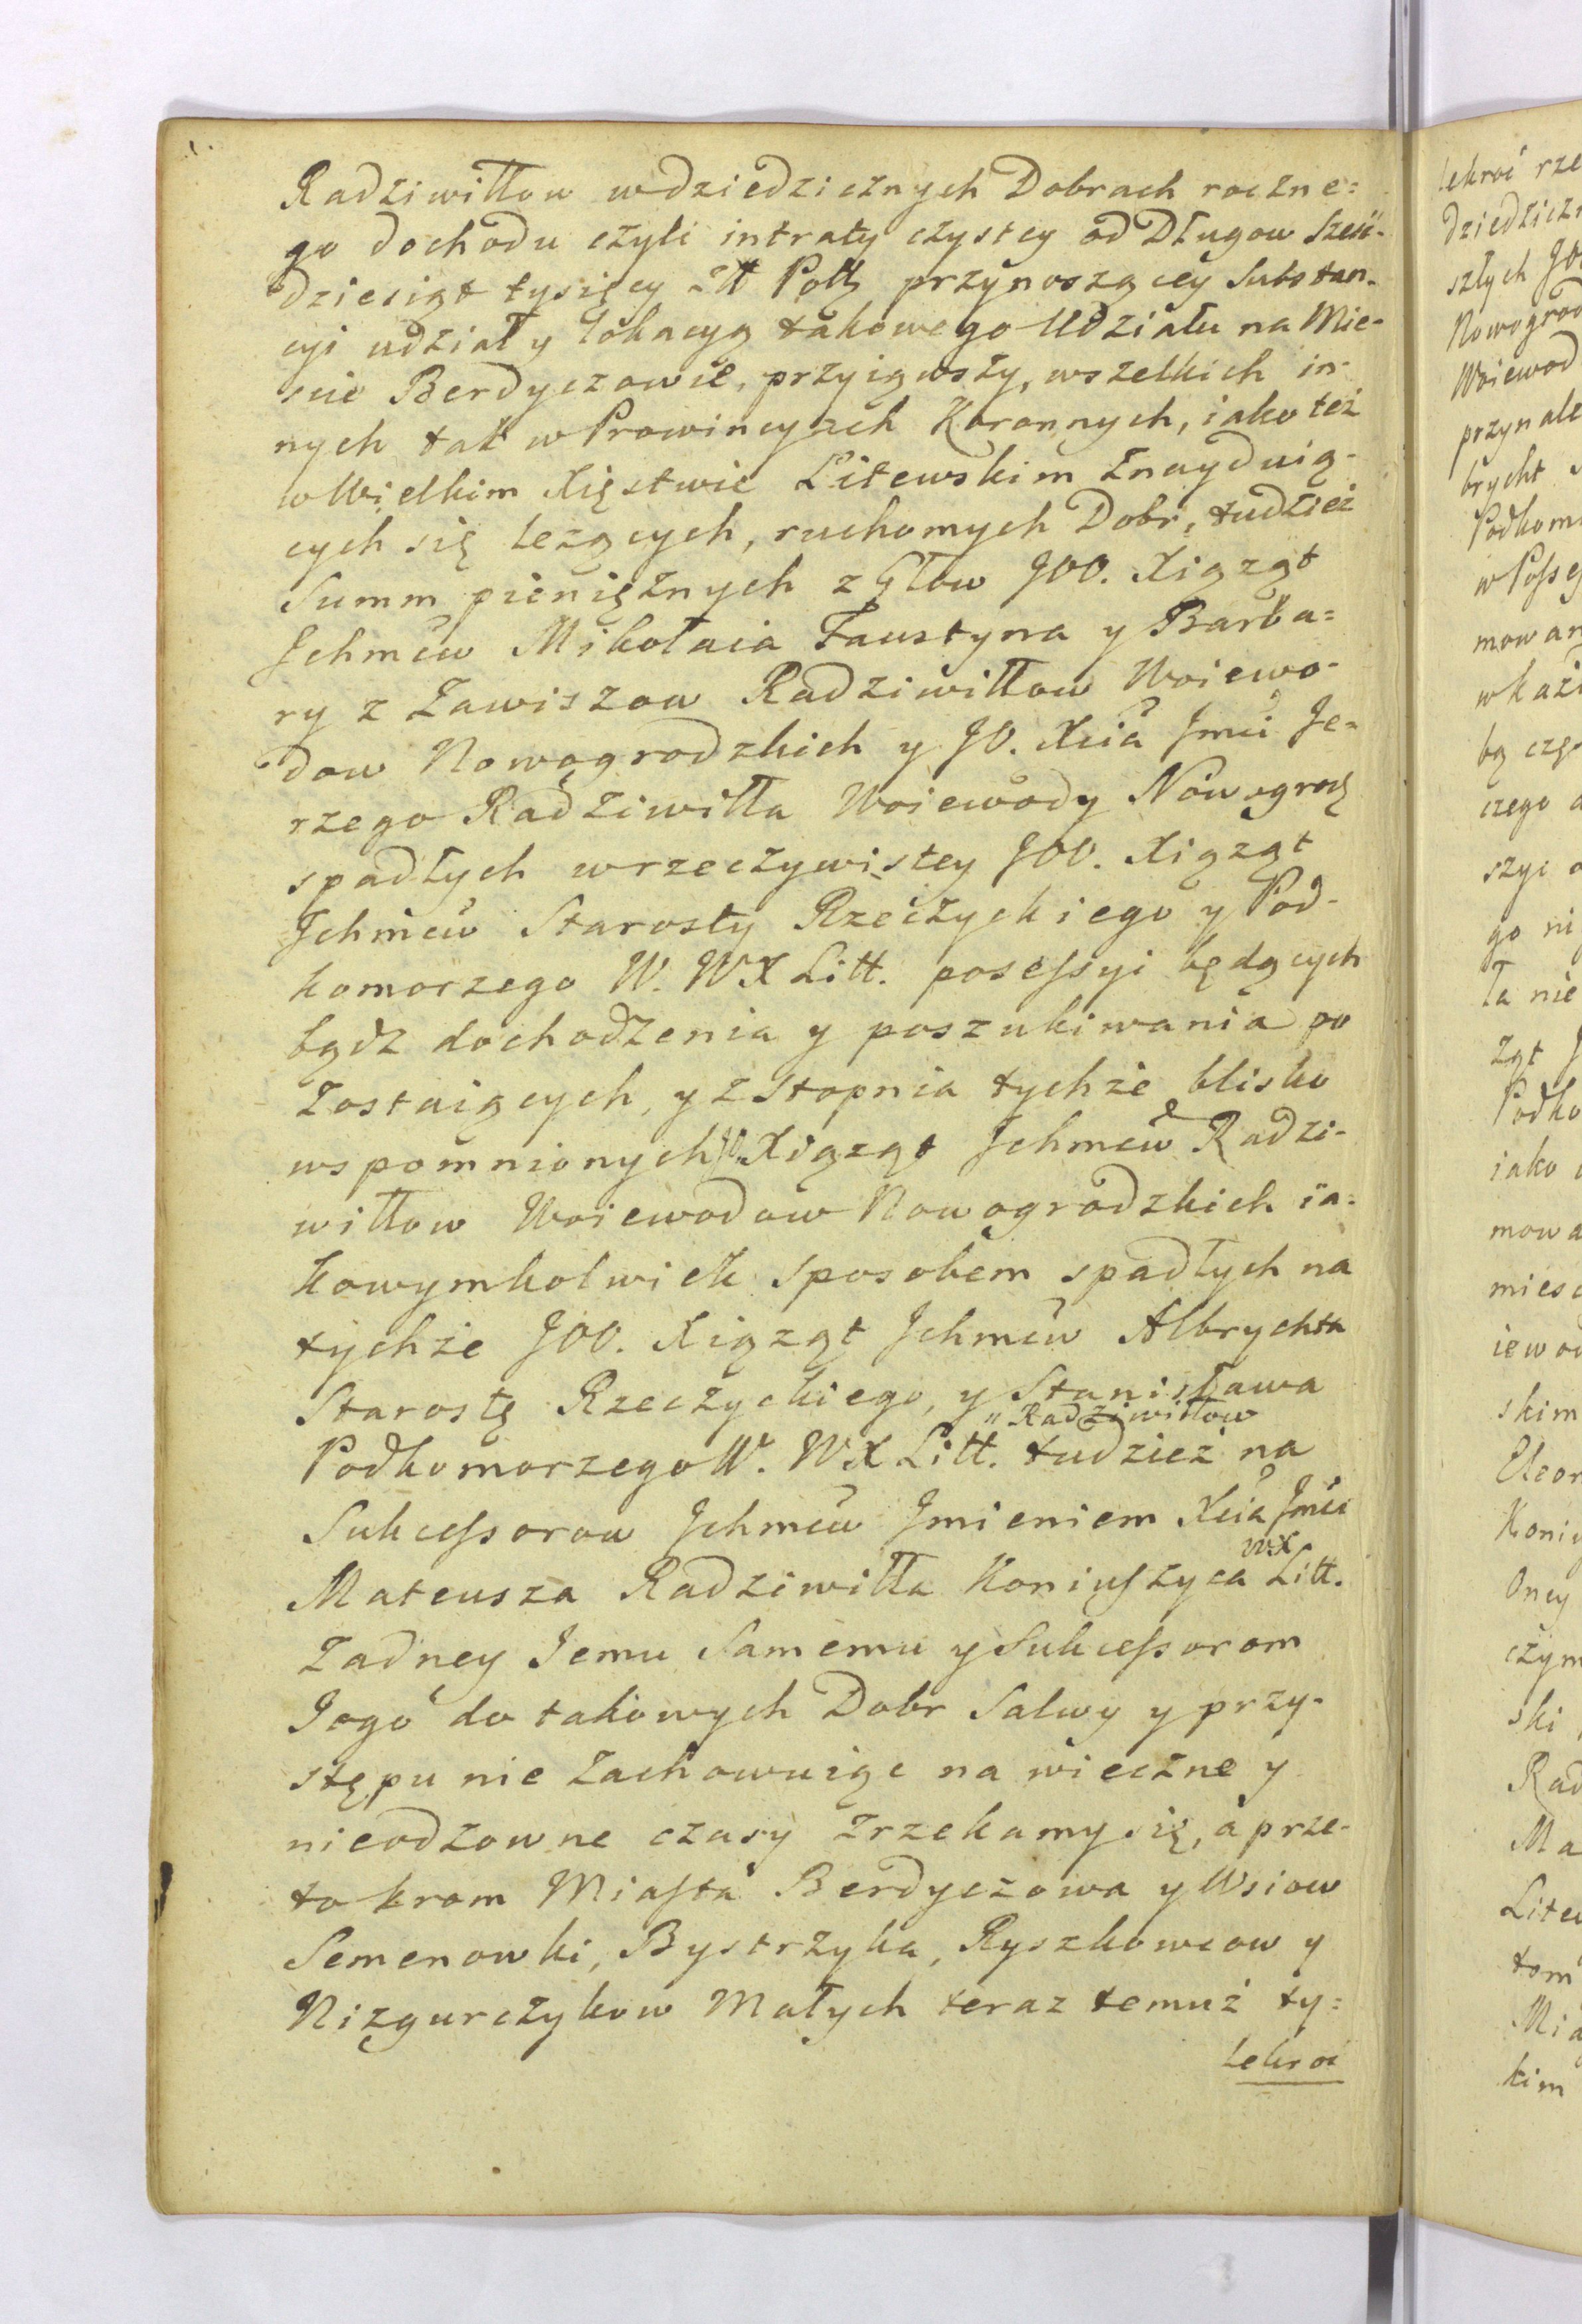 Radziwiłłow w dziedzicznych Dobrach roczne=
go dochodu czyli intraty czystey od Długow Sześć-
dziesiąt tysięcy Złł Polł przynoszącey Substan-
cyi udział y lokacyą takowego Udziału na Mie-
scie Berdyczowie, przyiąwszy, wszelkich in-
nych tak w Prowincyach Koronnych, iako też
w Wielkim Xięstwie Litewskim znayduią-
cych się leżących, ruchomych Dobr, tudzież
Summ pieniężnych z Głow JOO. Xiąząt
Jchmćiw Mikołaia Faustyna y Barba=
ry z Zawiszow Radziwiłłow Woiewo-
dow Nowogrodzkich y JO. Xcia Jmći Je=
rzego Radziwiłła Woiewody Nowogrodz
spadłych w rzeczywistey JOO. Xiąząt
Jchmćiw Starosty Rzeczyckiego y Pod-
komorzego W. WX Litt. posessyi będących
bądz dochodzenia y poszukiwania po
zostaiących, y z Stopnia tychże blisko
wspomnionych JO. Xiąząt Jchmćiw Radzi-
wiłłow Woiewodow Nowogrodzkich ia=
kowymkolwiek sposobem spadłych na
tychże JOO. Xiąząt Jchmćiw Albrychta
Starostę Rzeczyckiego, y Stanisława
" Radziwiłłow
Podkomorzego W. WX Litt. tudzież na
Sukcessorow Jchmćiw Jmieniem Xcia Jmći
WX
Mateusza Radziwiłła Koniuszyca Litt.
Zadney Jemu Samemu y Sukcessorom
Jego do takowych Dobr Salwy y przy-
stępu nie zachowuiąc na wieczne y
nieodzowne czasy zrzekamy się, a prze-
to krom Miasta Berdyczowa y Wsiow
Semenowki, Bystrzyka, Ryszkowcow y
Nizgurczykow Małych teraz temuż ty=
lekroć